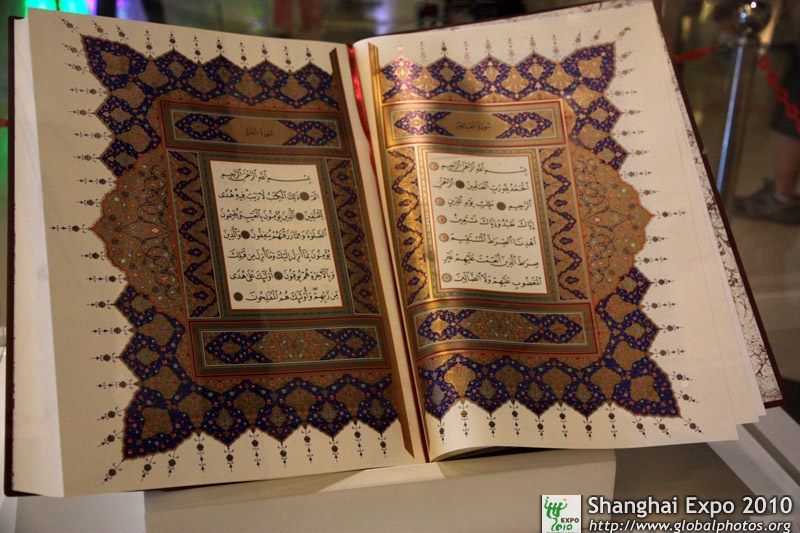 سُورَةُ الْفَاتِحَةِ
بِسْمِ اللهِ الرَّحْمٰنِ الرَّحِيمِ
اَلْحَمْدُ لِلّٰهِ رَبِّ الْعَالَمِينَ اَلرَّحْمٰنِ
الرَّحِيمِ مٰلِكِ يَوْمِ الدِّينِ
اِيَّاكَ نَعْبُدُ وَاِيَّاكَ نَسْتَعِينُ
اِهْدِنَا الصِّرَاطَ الْمُسْتَقِيمَ
صِرَاطَ الَّذِينَ اَنْعَمْتَ عَلَيْهِمْ غَيْرِ
الْمَغْضُوبِ عَلَيْهِمْ وَلَا الضَّالِّينَ
سُورَةُ الْبَقَرَةِ
بِسْمِ اللهِ الرَّحْمٰنِ الرَّحِيمِ
الٓمٓ ذٰلِكَ الْكِتٰبُ لَا رَيْبَ فِيهِ هُدًى
لِلْمُتَّقِينَ اَلَّذِينَ يُؤْمِنُونَ بِالْغَيْبِ وَيُقِيمُونَ
الصَّلٰوةَ وَمِمَّا رَزَقْنَاهُمْ يُنْفِقُونَ وَالَّذِينَ
يُؤْمِنُونَ بِمَا اُنْزِلَ اِلَيْكَ وَمَا اُنْزِلَ مِنْ قَبْلِكَ
وَبِالْاٰخِرَةِ هُمْ يُوقِنُونَ اُولٰئِكَ عَلٰى هُدًى
مِنْ رَبِّهِمْ وَاُولٰئِكَ هُمُ الْمُفْلِحُونَ
EXPO
2010
Shanghai Expo 2010
http://www.globalphotos.org